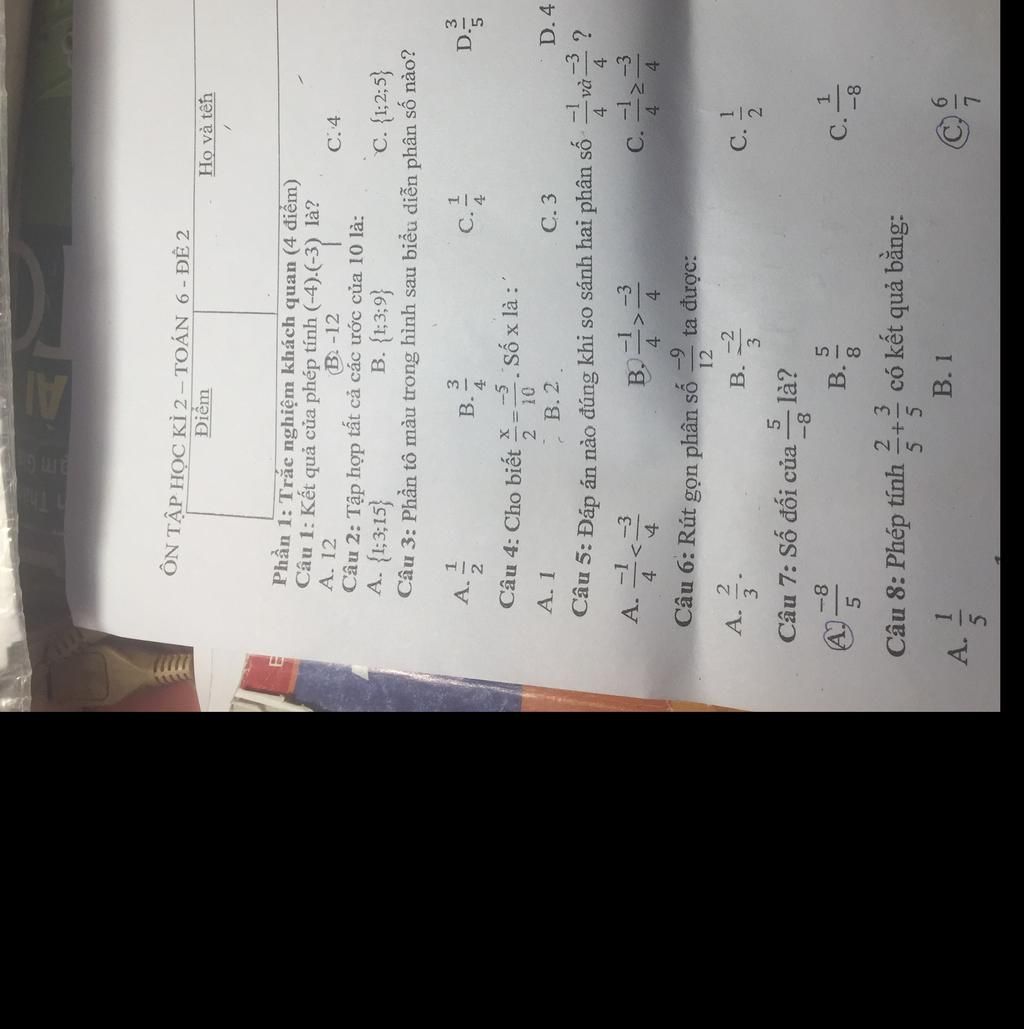 ÔN TẬP HỌC KÌ 2 – TOÁN 6 - ĐỀ 2
Điểm Họ và tên
Phần 1: Trắc nghiệm khách quan (4 điểm)
Câu 1: Kết quả của phép tính (-4).(-3) là?
A. 12 B. -12 C. 4
Câu 2: Tập hợp tất cả các ước của 10 là:
A. {1;3;15} B. {1;3;9} C. {1;2;5}
Câu 3: Phần tô màu trong hình sau biểu diễn phân số nào?
A. 1/2 B. 3/4 C. 1/4 D. 3/5
Câu 4: Cho biết x/2 = -5/10. Số x là :
A. 1 B. 2 C. 3 D. 4
Câu 5: Đáp án nào đúng khi so sánh hai phân số -1/4 và -3/4 ?
A. -1/4 < -3/4 B. -1/4 > -3/4 C. -1/4 ≥ -3/4
Câu 6: Rút gọn phân số -9/12 ta được:
A. 2/3. B. -2/3 C. 1/2
Câu 7: Số đối của 5/-8 là?
A. -8/5 B. 5/8 C. 1/-8
Câu 8: Phép tính 2/5 + 3/5 có kết quả bằng:
A. 1/5 B. 1 C. 6/7